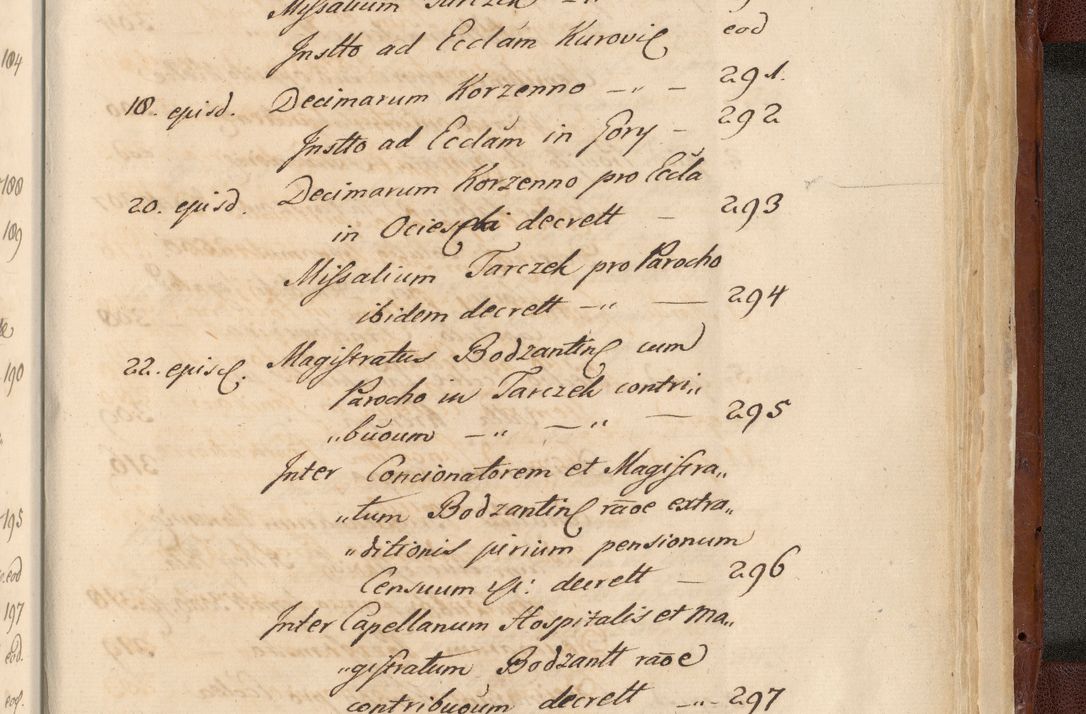 Missalium Tarczek
Instto ad Ecclam Kurovic eod
18. episd. Decimarum Korzenno – „ – 291.
Instto ad Ecclam in Gory – 292
20. episd. Decimarum Korzenno pro Eccla
in Ociesęki decrett – 293
Missalium Tarczek pro Parocho
ibidem decrett – „ — 294
22. episc. Magistratus Bodzantin cum
Parocho in Tarczek contri„
„buoum – „ – „ — 295
Inter Concionatorem et Magistra„
„tum Bodzantin raoe extra„
„ditionis jurium pensionum
Censuum et: decrett — 296
Inter Capellanum Hospitalis et Ma„
„gistratum Bodzantt raoe
contribuoum decrett – „ – 297
184
188
189
190
195
eod
197
eod.
eod.